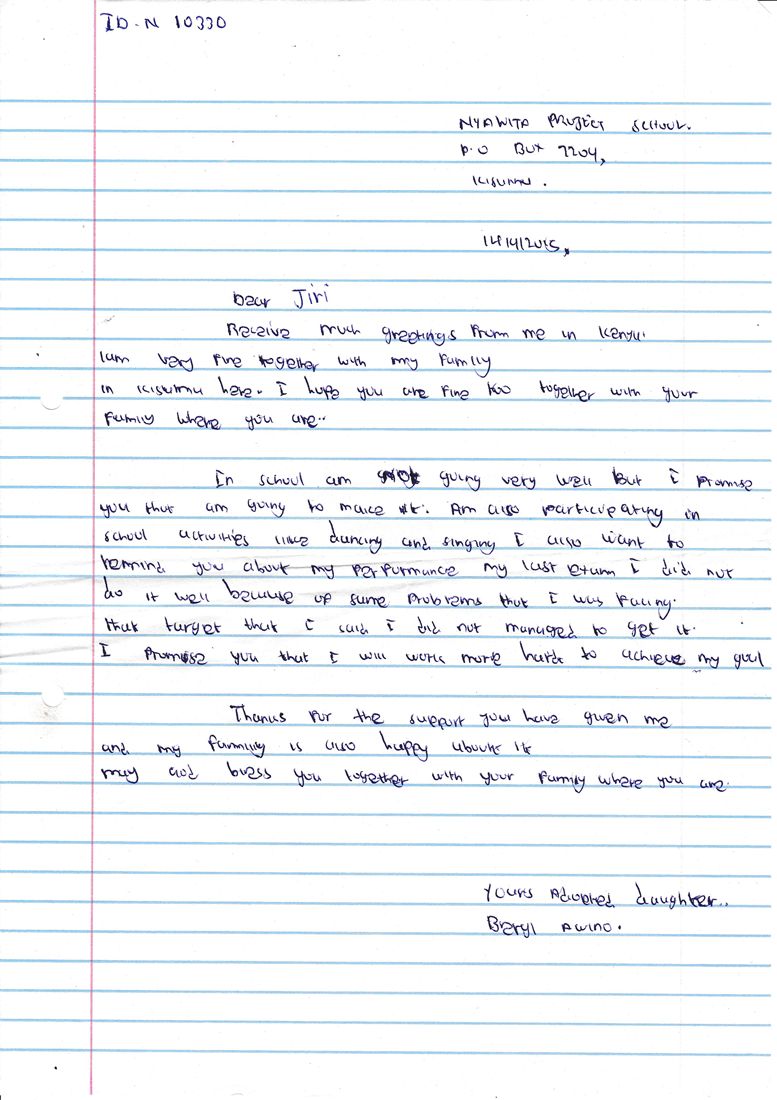 ID-N 10330
NYAWITA PROJECT SCHOOL.
P.O BOX 7204,
KISUMU.
14/4/2015,
Dear Jiri
Receive much greetings from me in Kenya.
Iam very fine together with my family
in Kisumu here. I hope you are fine too together with your
family where you are..
In school am going very well But i promise
you that am going to make it. Am also participating in
school activities like dancing and singing I also want to
remind you about my performance my last eturn I did not
do it well because of some problems that I was facing.
that target that i said i did not managed to get it.
I promise you that I will work more hard to achieve my goal
Thanks for the support you have given me
and my fammily is also happy about it
may God bless you together with your family where you are.
Yours Adopted daughter..
Beryl Awino.